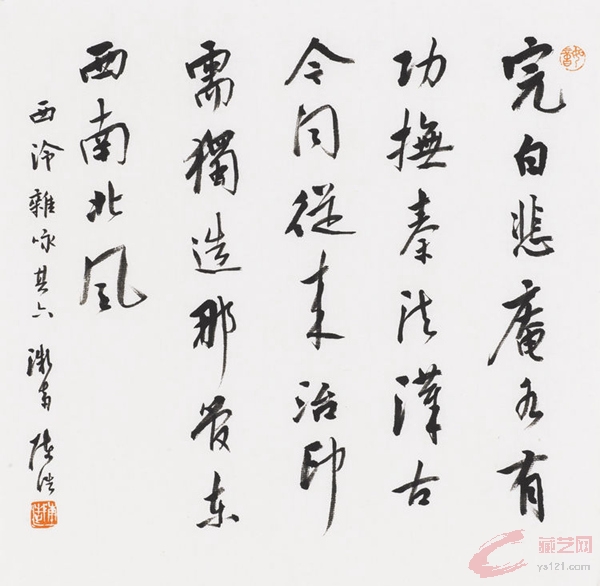 完白悲庵各有
功撫秦法漢古
今同從来治印
需獨造那管東
西南北風
西泠雜咏其六
藏艺网
ya121.com